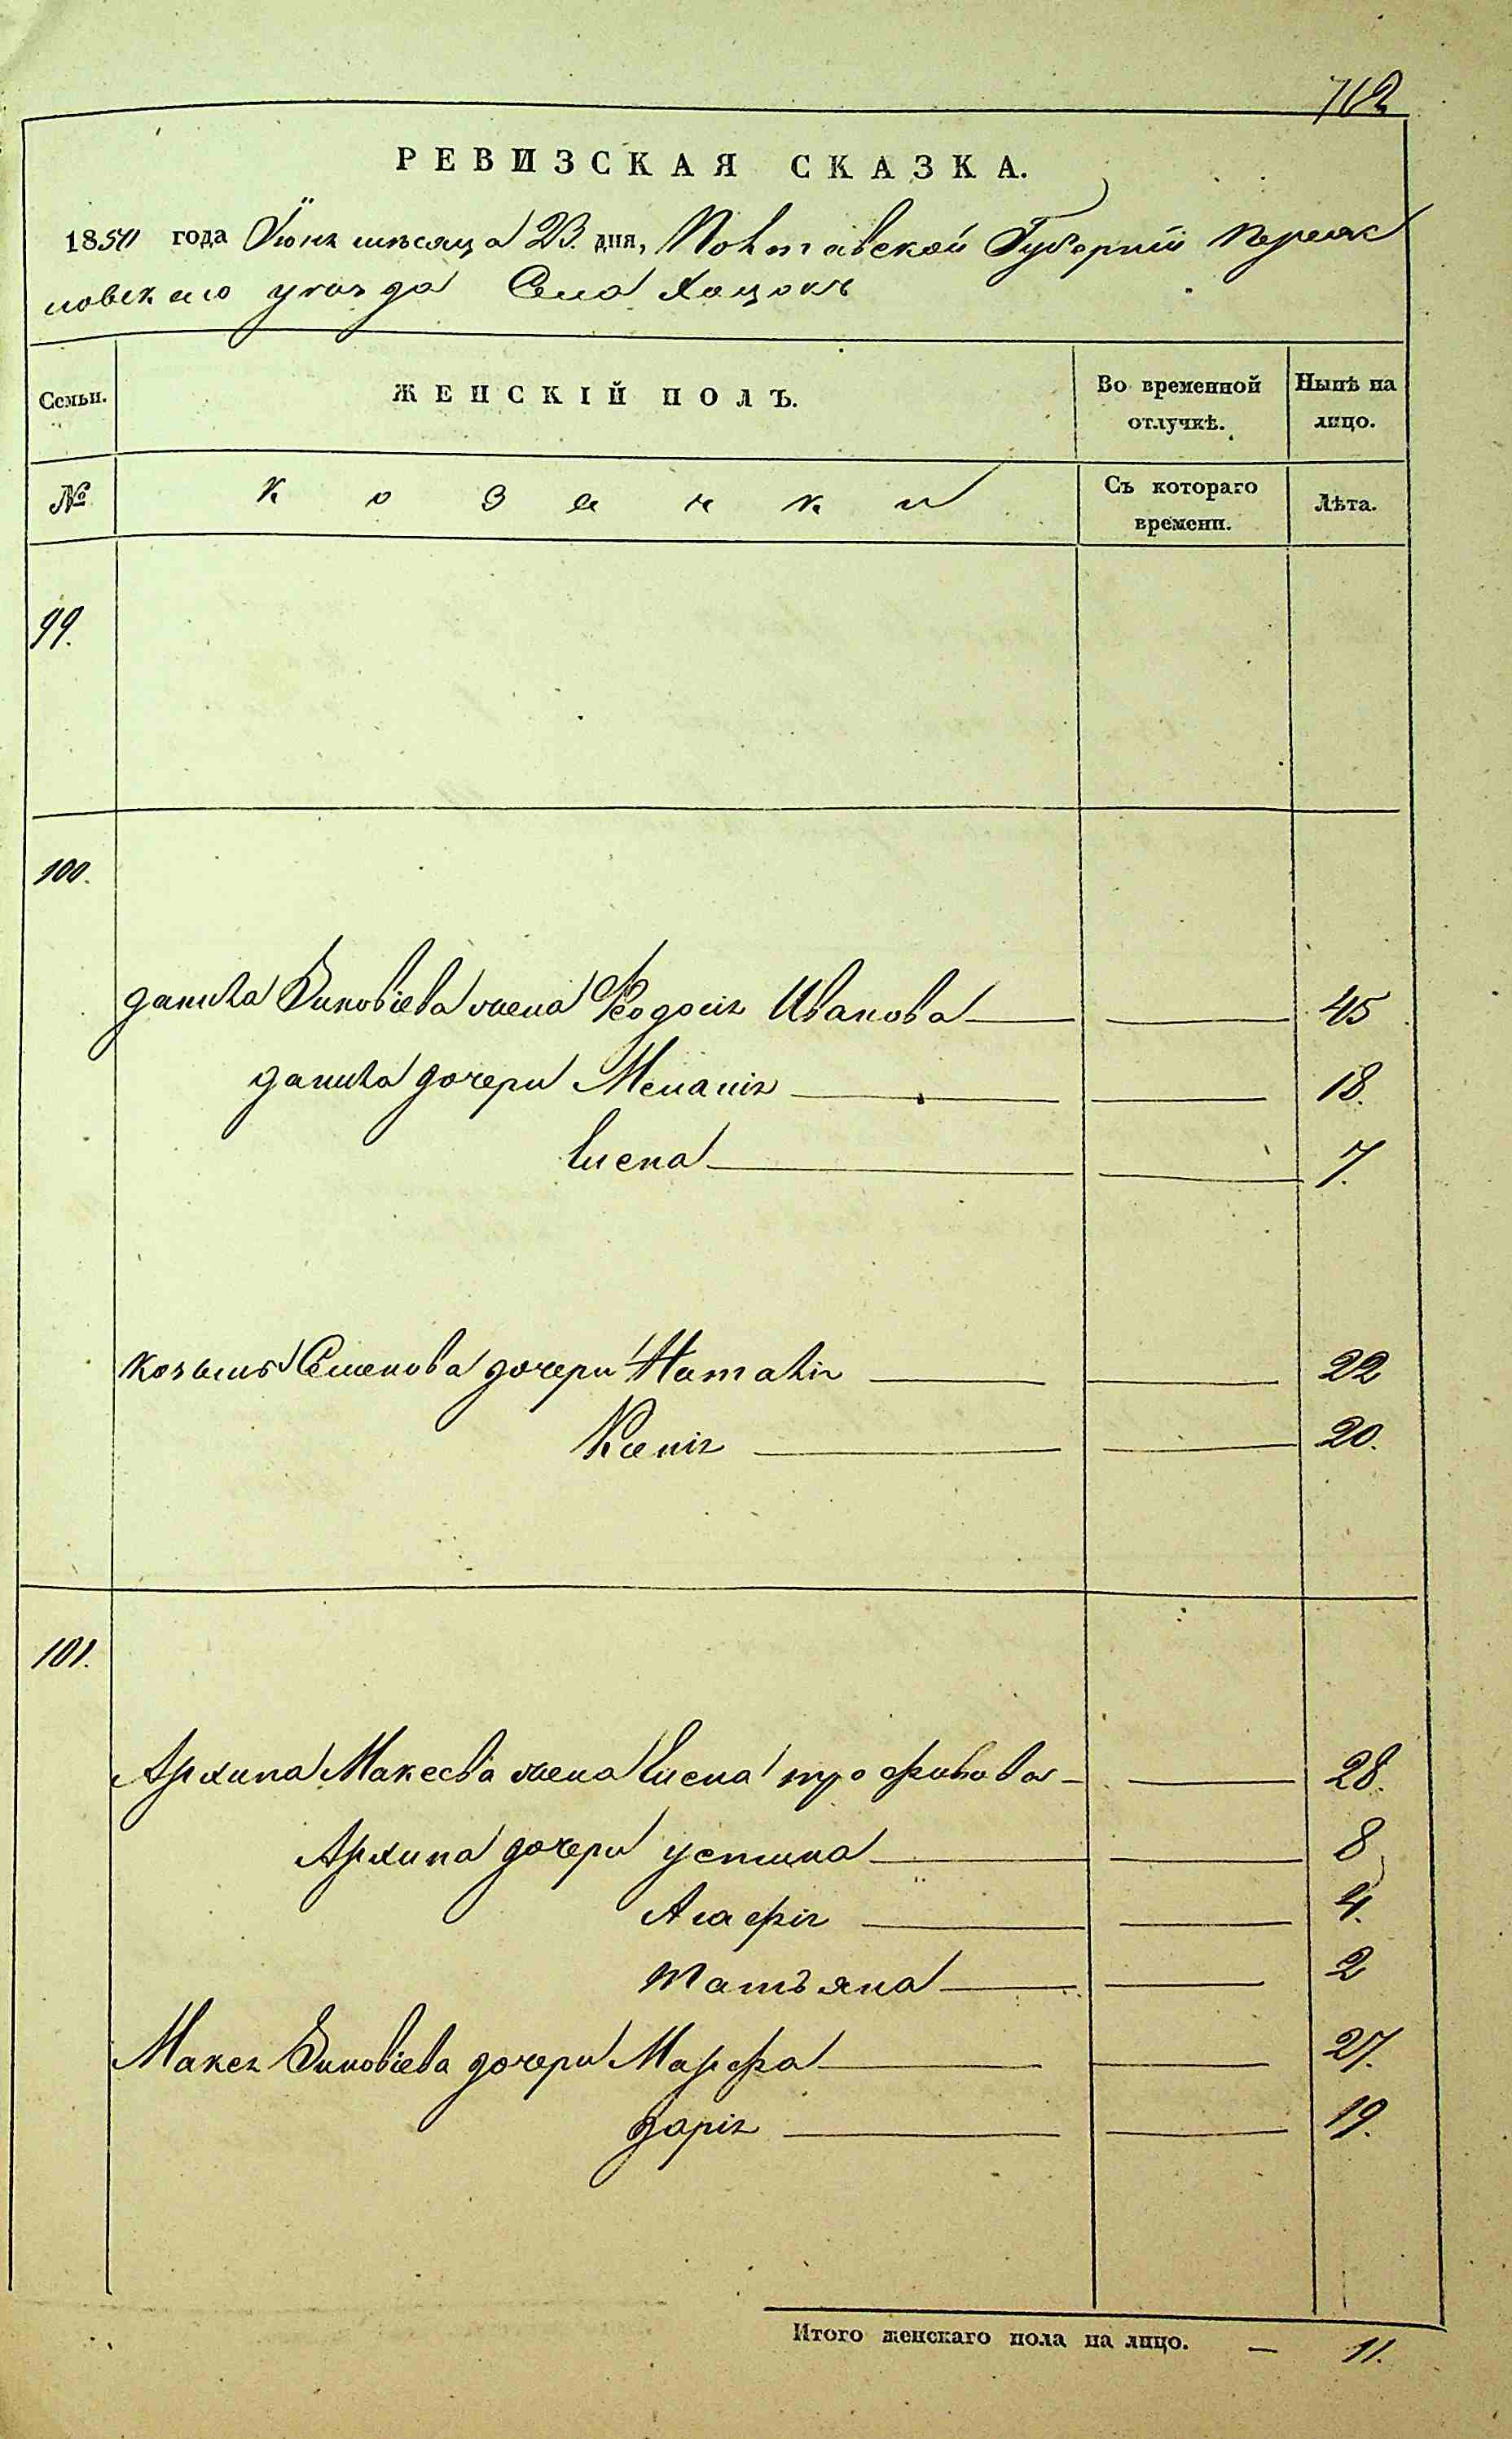 712
РЕВИЗСКАЯ СКАЗКА.
1850 года Іюня мѣсяца 23. дня, Полтавской Губерніи Переяс
ловскаго уѣзда Села Хоцокъ
Семьи. ЖЕНСКІЙ ПОЛЪ. Во временной отлучкѣ. Нынѣ на лицо.
№ Козачки Съ котораго времени. Лѣта.
99.
100.
Данила Зиновіева жена Ѳеодосія Иванова 45
Данила дочери Меланія 18.
Елена 7.
Козьмы Семенова дочери Наталія 22
Ксенія 20.
101.
Архипа Макеева жена Елена Трофимова 28.
Архипа дочери Устина 8
Агафія 4.
Татьяна 2
Макея Зиновіева дочери Марфа 27.
Дарія 19.
Итого женскаго пола на лицо. — 11.